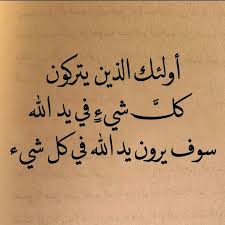 أولئك الذين يتركون
كلَّ شيءٍ في يد الله
سوف يرون يد الله في كل شيء